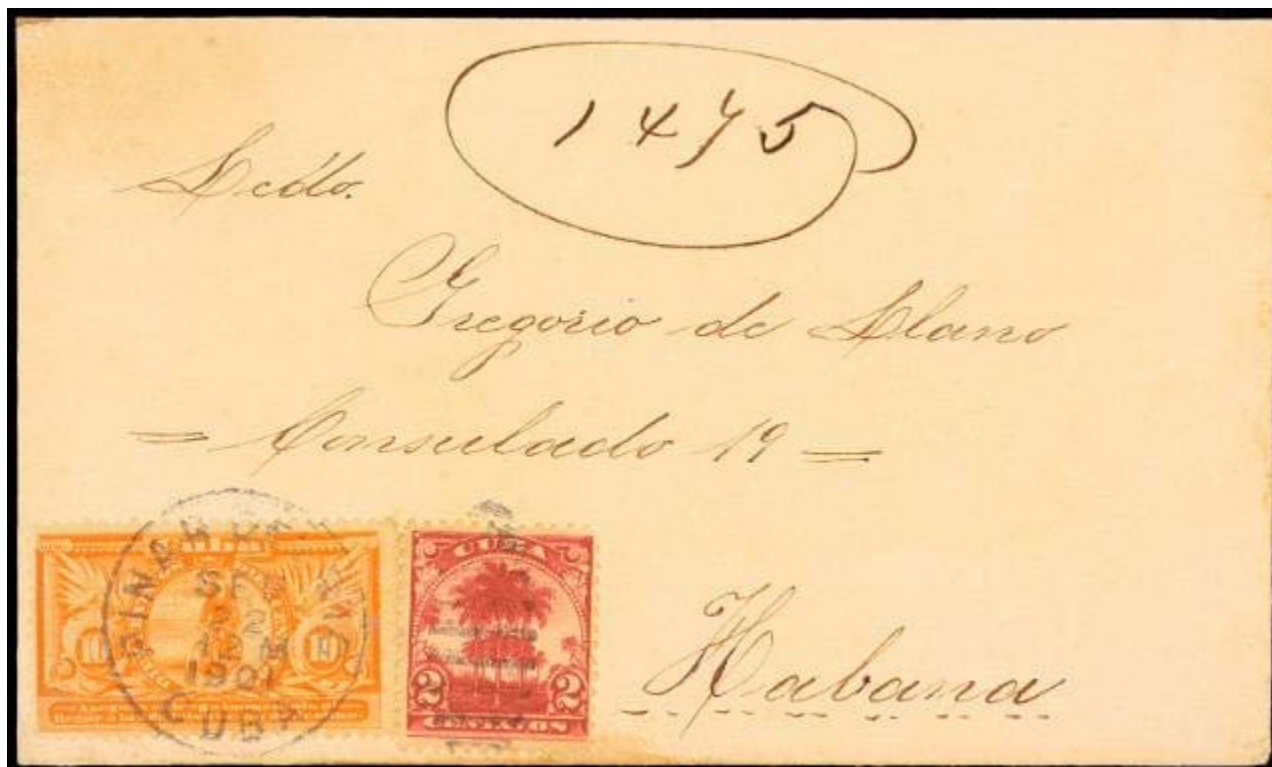 1475
Lcdo.
Gregorio de Llano
= Consulado 19 =
Habana
PINAR DEL RIO
SEP
22
12 M
1901
CUBA
10 10
CUBA
2 2
CENTAVOS